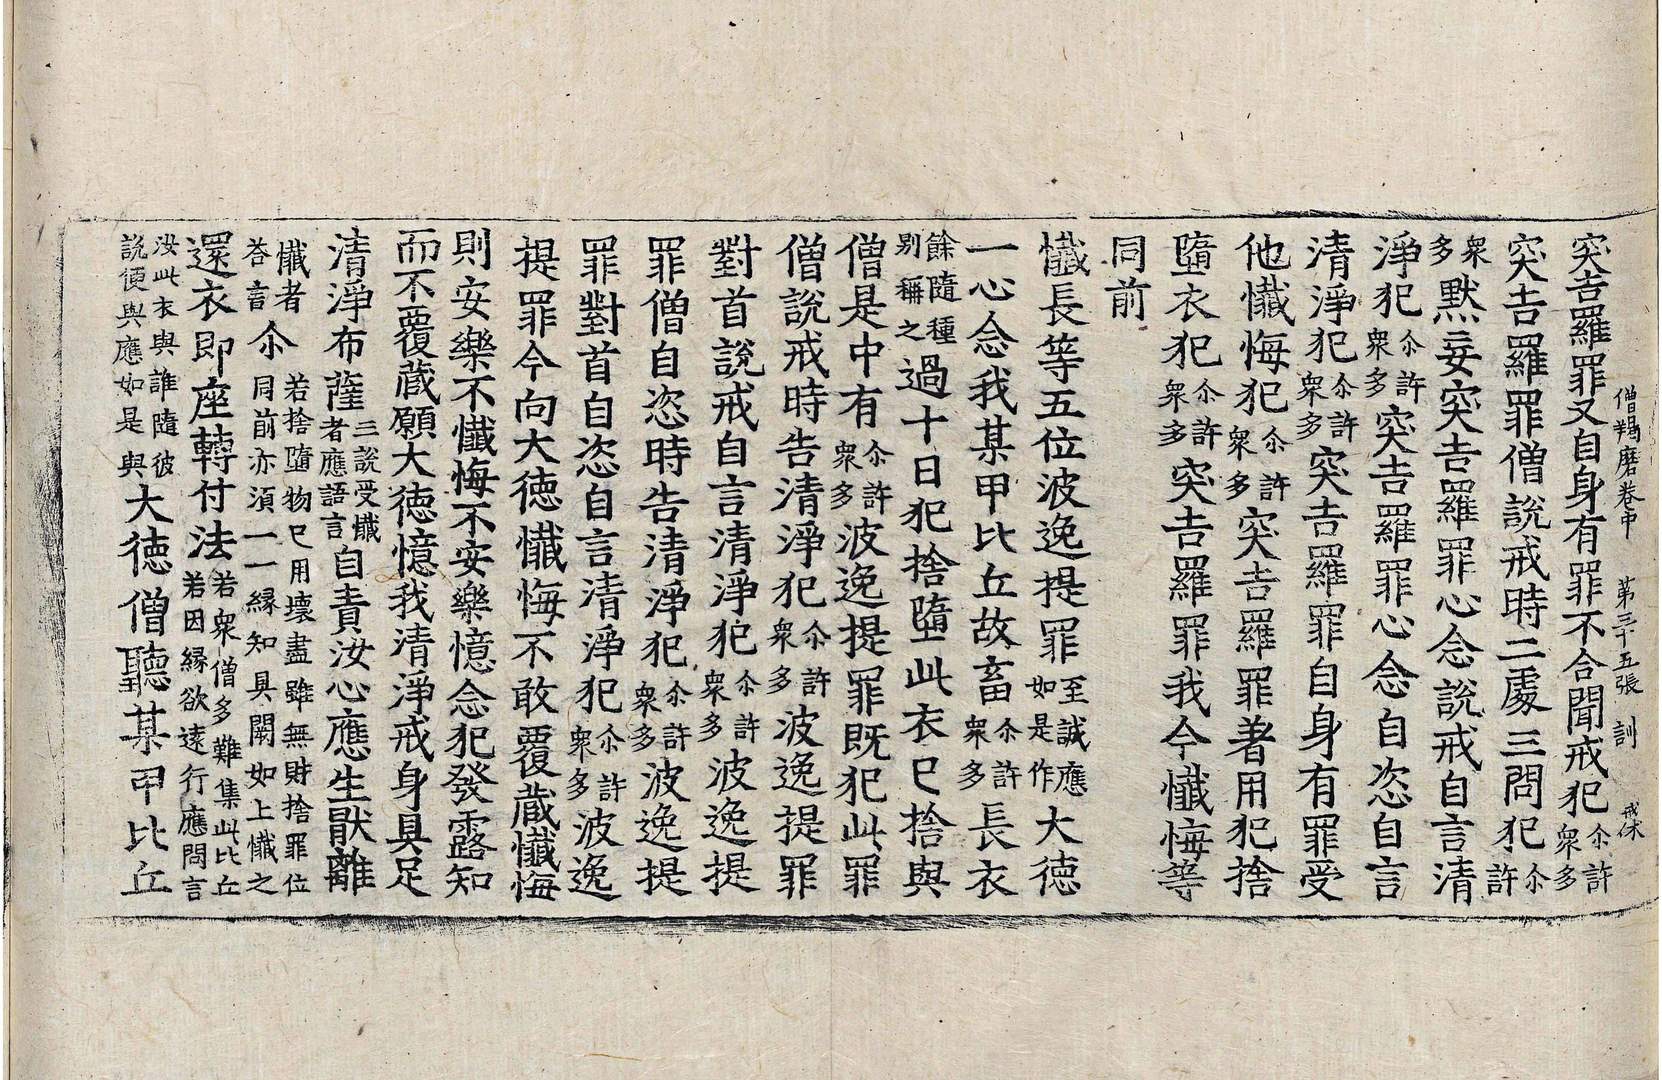 僧羯磨卷中 第三十五張 訓 戒休
突吉羅罪又自身有罪不合聞戒犯尒許衆多
突吉羅罪僧說戒時二處三問犯尒許
衆多默妄突吉羅罪心念說戒自言清
淨犯尒許衆多突吉羅罪心念自恣自言
清淨犯尒許衆多突吉羅罪自身有罪受
他懺悔犯尒許衆多突吉羅罪著用犯捨
墮衣犯尒許衆多突吉羅罪我今懺悔等
同前
懺長等五位波逸提罪至誠應如是作大德
一心念我某甲比丘故畜尒許衆多長衣
餘隨種別稱之過十日犯捨墮此衣已捨與
僧是中有尒許衆多波逸提罪既犯此罪
僧說戒時告清淨犯尒許衆多波逸提罪
對首說戒自言清淨犯尒許衆多波逸提
罪僧自恣時告清淨犯尒許衆多波逸提
罪對首自恣自言清淨犯尒許衆多波逸
提罪今向大德懺悔不敢覆藏懺悔
則安樂不懺悔不安樂憶念犯發露知
而不覆藏願大德憶我清淨戒身具足
清淨布薩三說受懺者應語言自責汝心應生猒離
懺者荅言尒若捨墮物已用壞盡雖無財捨罪位同前亦須一一緣知具闕如上懺之
還衣即座轉付法若衆僧多難集此比丘若因緣欲遠行應問言
汝此衣與誰隨彼說便與應如是與大德僧聽某甲比丘